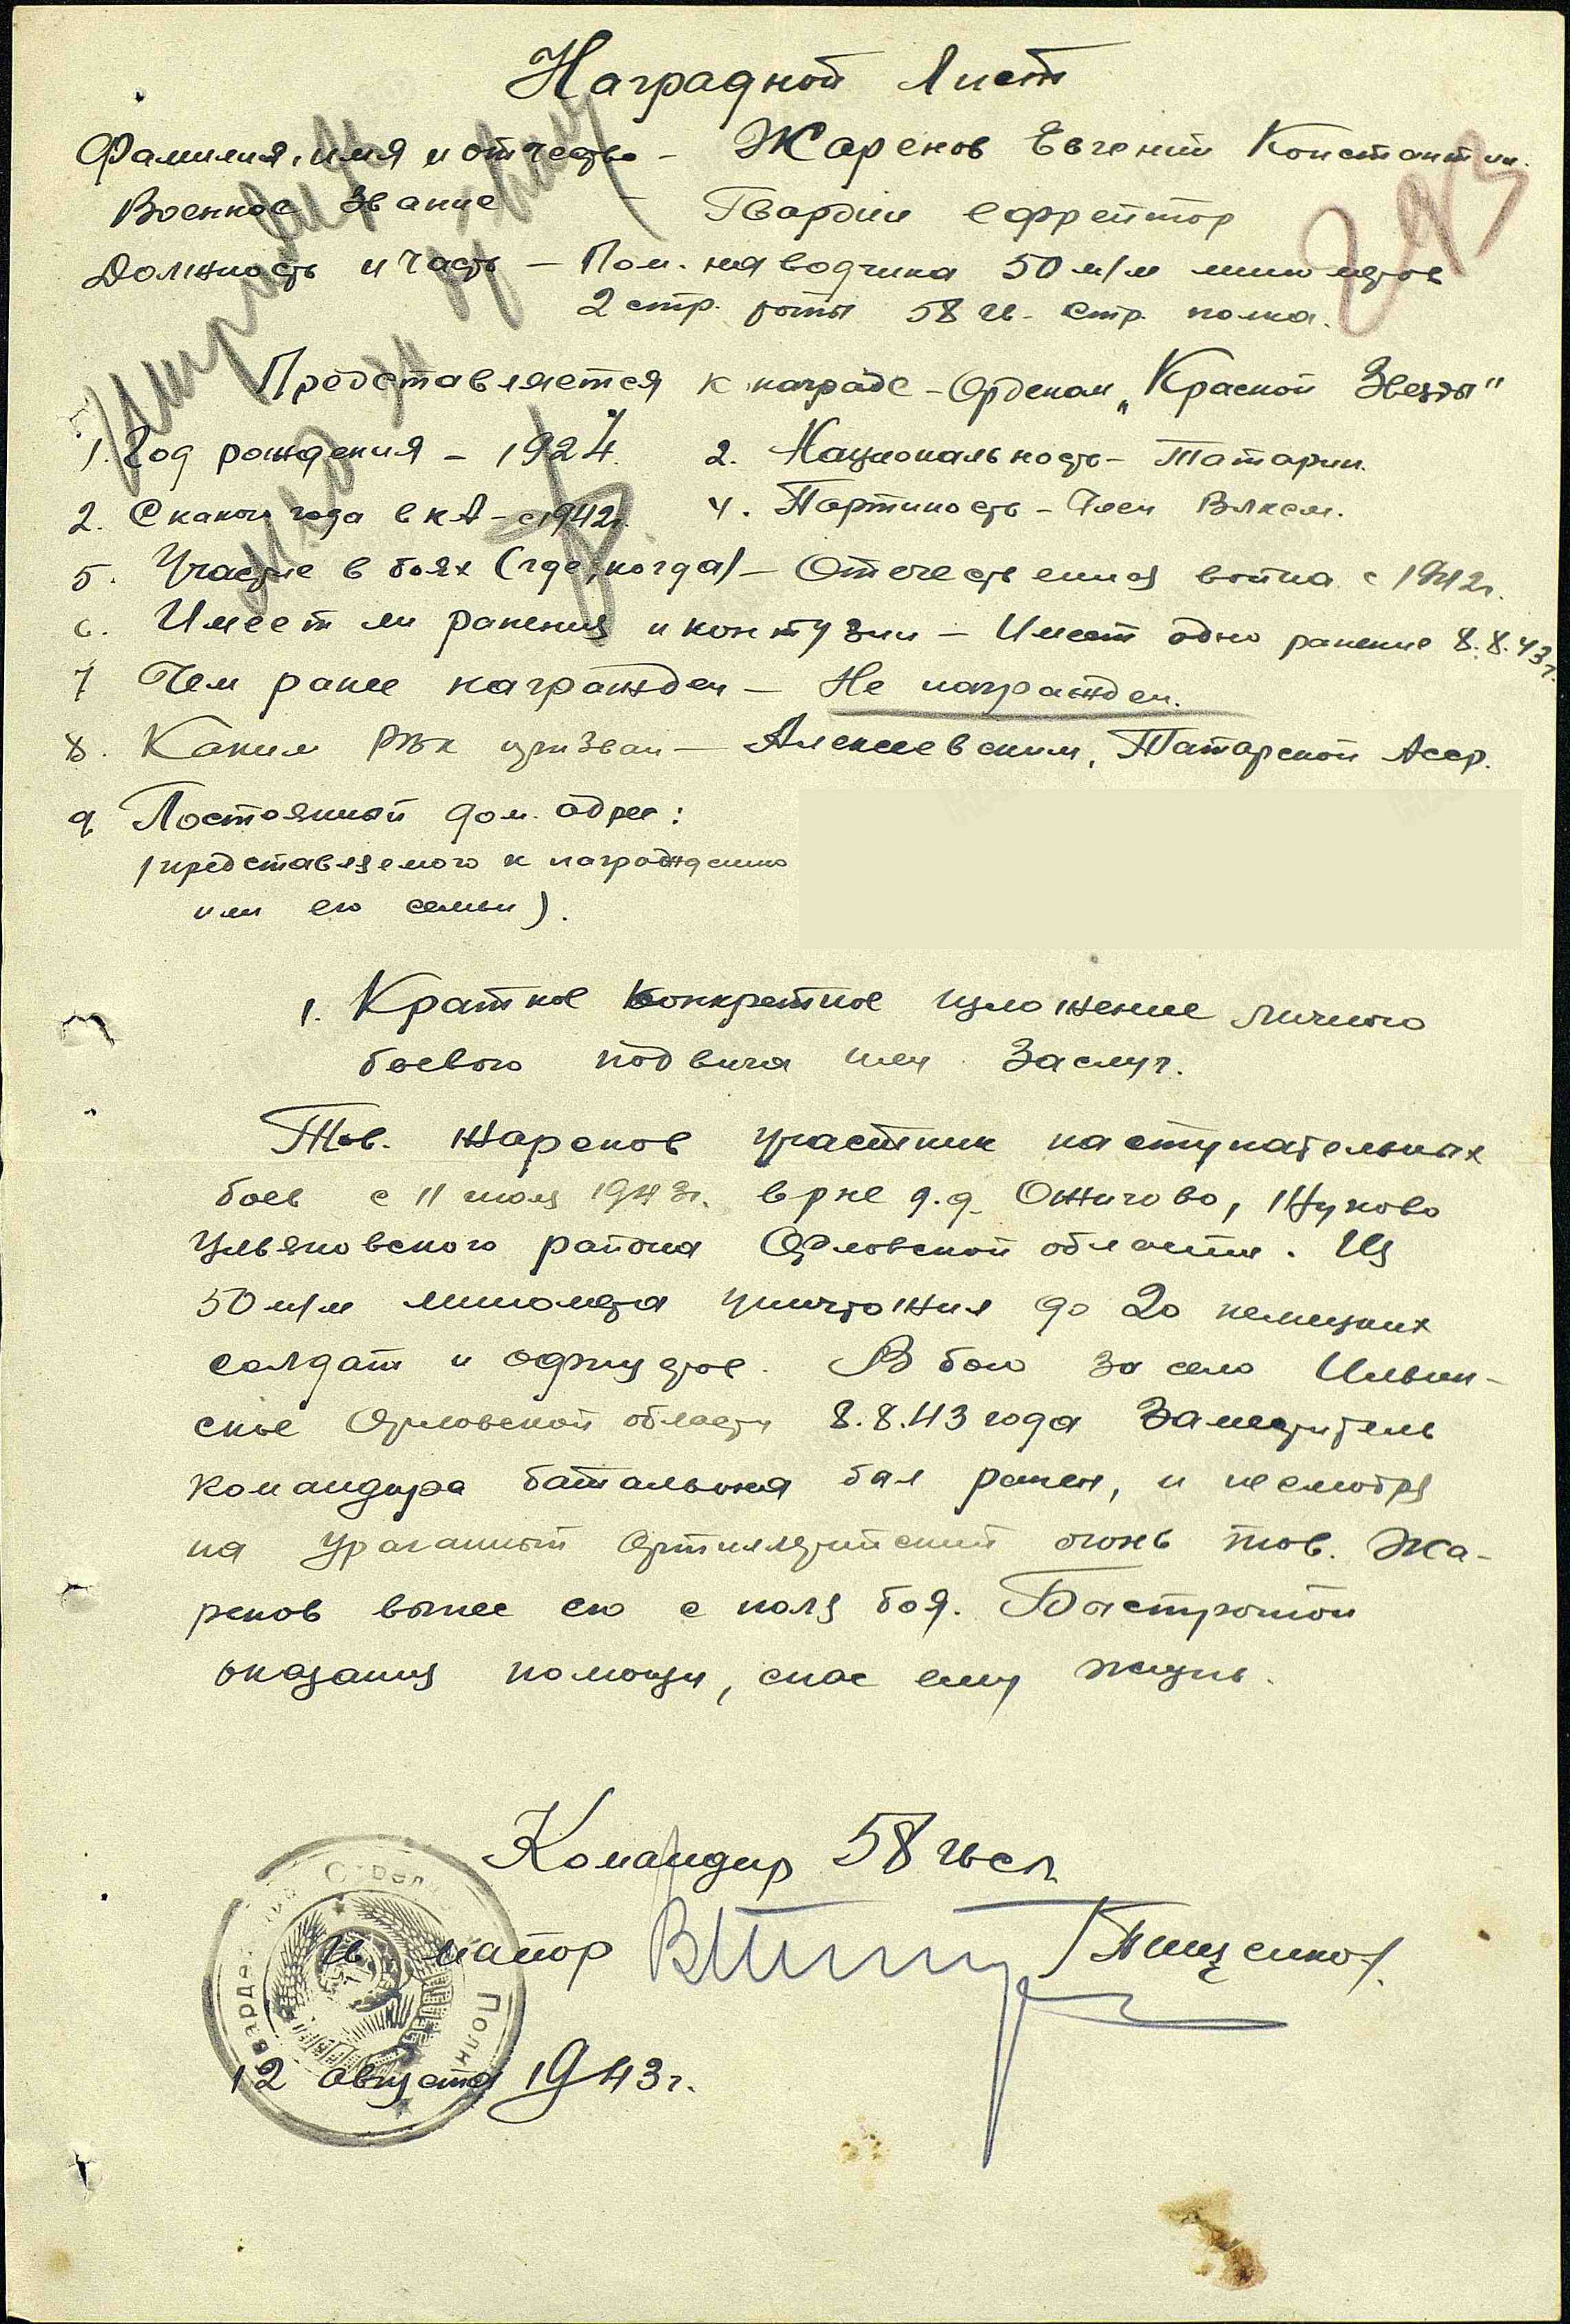 Наградной Лист
Фамилия, имя и отчество - Жаренов Евгений Константин.
Военное звание - Гвардии ефрейтор
Должность и часть - Пом. наводчика 50 м/м минометов
2 стр. роты 58 гв. стр. полка.
Представляется к награде - Орденом „Красной Звезды"
1. Год рождения - 1924. 2. Национальность - Татарин.
2. С какого года в КА - с 1942г. 4. Партийность - Член ВЛКСМ.
5. Участие в боях (где, когда) - Отечественная война с 1942г.
6. Имеет ли ранения и контузии - Имеет одно ранение 8.8.43г.
7 Чем ранее награжден - Не награжден.
8. Каким РВК призван - Алексеевским, Татарской Асср.
9 Постоянный дом. адрес:
(представляемого к награждению
или его семьи).
1. Краткое конкретное изложение личного
боевого подвига или заслуг.
Тов. Жаренов участник наступательных
боев с 11 июля 1943г. в р-не д.д. Ожигово, Жуково
Ульяновского района Орловской области. Из
50 м/м миномета уничтожил до 20 немецких
солдат и офицеров. В бою за село Ильин-
ское Орловской области 8.8.43 года Заместитель
командира батальона был ранен, и несмотря
на ураганный артиллерийский огонь тов. Жа-
ренов вынес его с поля боя. Быстротой
оказания помощи, спас ему жизнь.
Командир 58 гвсп
гв майор /Тищенко/.
12 августа 1943г.